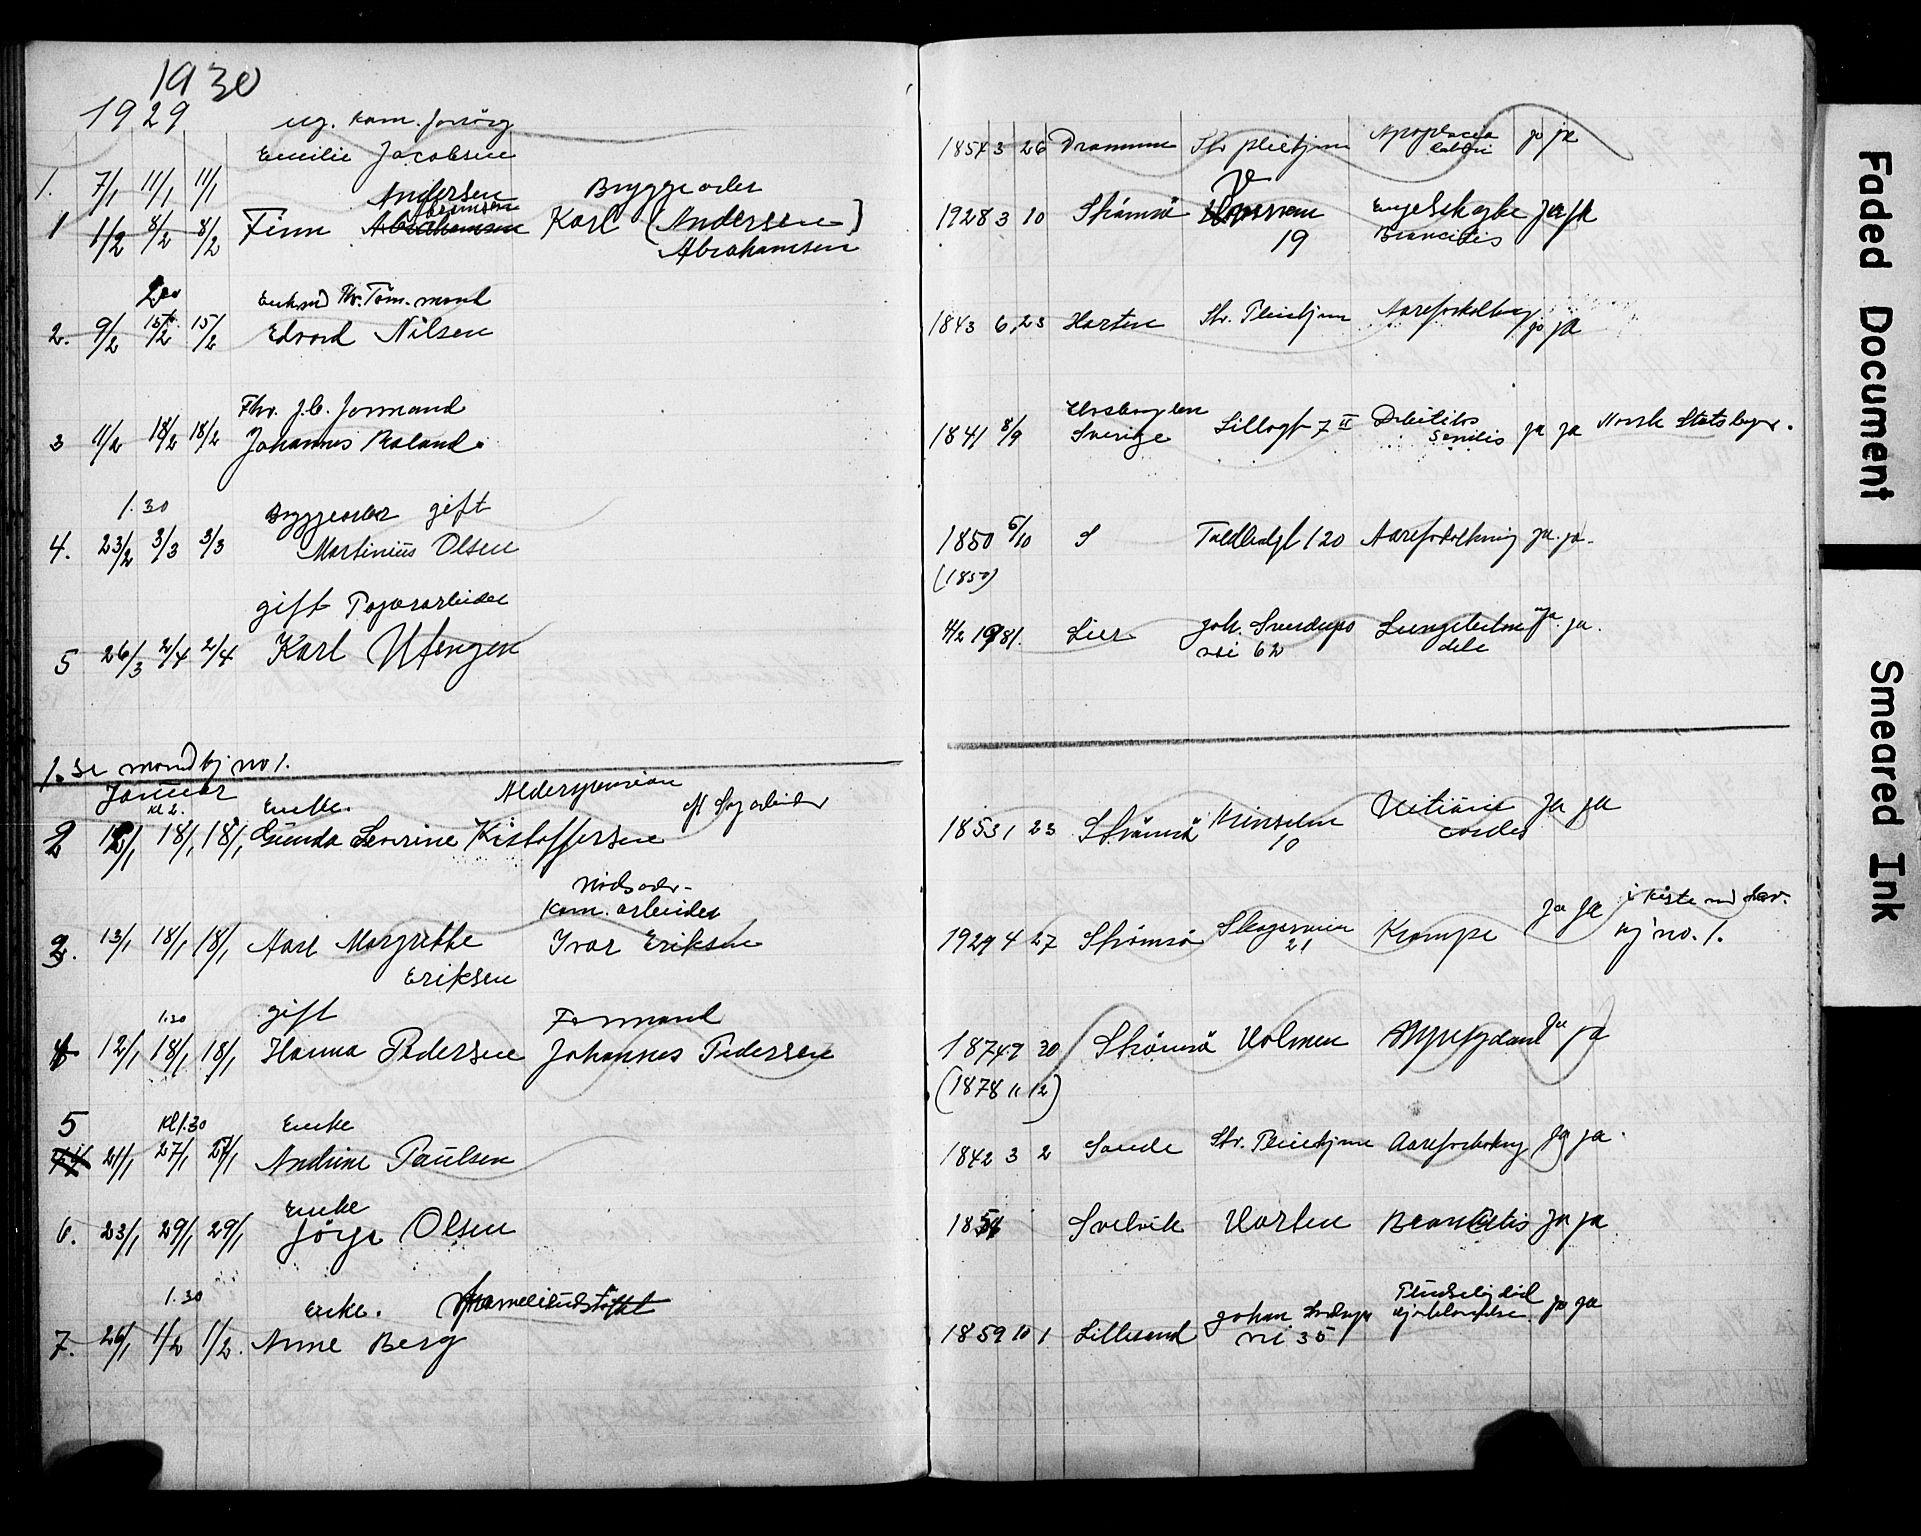 1930
1929
ug. kom. forsörg
Emilie Jacobsen
1. 7/1 11/1 11/1
1854 3 26 Drammen Str pleiehjem Apoplexia ja ja
Andersen Bryggearb
1 1/2 8/2 8/2 Finn Abrahamsen Karl (Andersen)
Abrahamsen
1928 3 10 Strömsö 19 Engelsk syke Broncitis ja ja
Enkmd Fhv. Töm.mand
2. 9/2 15/2 15/2 Edvard Nilsen
1843 6 23 Horten Str. Pleiehjem Aareforkalkng ja ja
Fhv. J.b. formand
3 11/2 18/2 18/2 Johannes Roland.
1841 8/9 Sverige Lillegt 7 II Debilitas senilis ja ja Norsk Statsbgr.
1.30
Bryggearb gift
4. 23/2 3/3 3/3 Martinius Olsen
1850 5/10 S Toldbodgt 120 Aareforkalkning ja ja.
(1850)
gift Papirarbeider
5 26/3 2/4 2/4 Karl Utengen
4/2 1981. Lier Joh. Sverdrups vei 62 ja. ja.
1. Se mandkj no 1.
Januar
Kl 2. Enke. Alderspension
2 12/1 18/1 18/1 Gunda Severine Kistoffersen
1853 1 23 Strömsö 10 Vitium cordis ja ja
Nödsarb-
Kom. arbeider
3. 13/1 18/1 18/1 Aase Margrethe Ivar Eriksen
Eriksen
1929 4 27 Strömsö Skogerveien 21 Krampe ja ja i kiste md
kj no. 1.
1.30 gift Formand
4 12/1 18/1 18/1 Hanna Pedersen Johannes Pedersen
1874 9 30 Strömsö Holmen ja ja
(1878 11 12)
5 Kl 1.30 Enke
21/1 27/1 27/1 Andrine Paulsen
1842 3 2 Sande Str. Pleiehjem Aareforkalkng ja ja.
Enke
6. 23/1 29/1 29/1 Jörgi Olsen
1854 Svelvik Horten Broncitis ja ja
1.30 Enke.
7. 26/1 1/2 1/2. Anne Berg
1859 10 1 Lillesand Johan Sverdrups vei 35 Pludselig död hjertelammelse ja ja
Faded Document
Smeared Ink